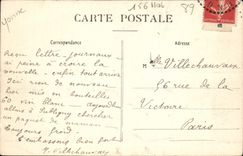 Yonne
156 Mot
89
CARTE POSTALE
Correspondance
reçu lettre, journaux
ai peine à croire la
nouvelle - enfin tout arrive
rien de nouveau
hier mis en bouteilles
50 vin blanc - aujourd'hui
allons à Aubigny chercher
un paquet de maman
Toujours froid.
T'embrassons bien fort
Villechauvay
Mlle Villechauvain
56 rue de la
Victoire
Paris